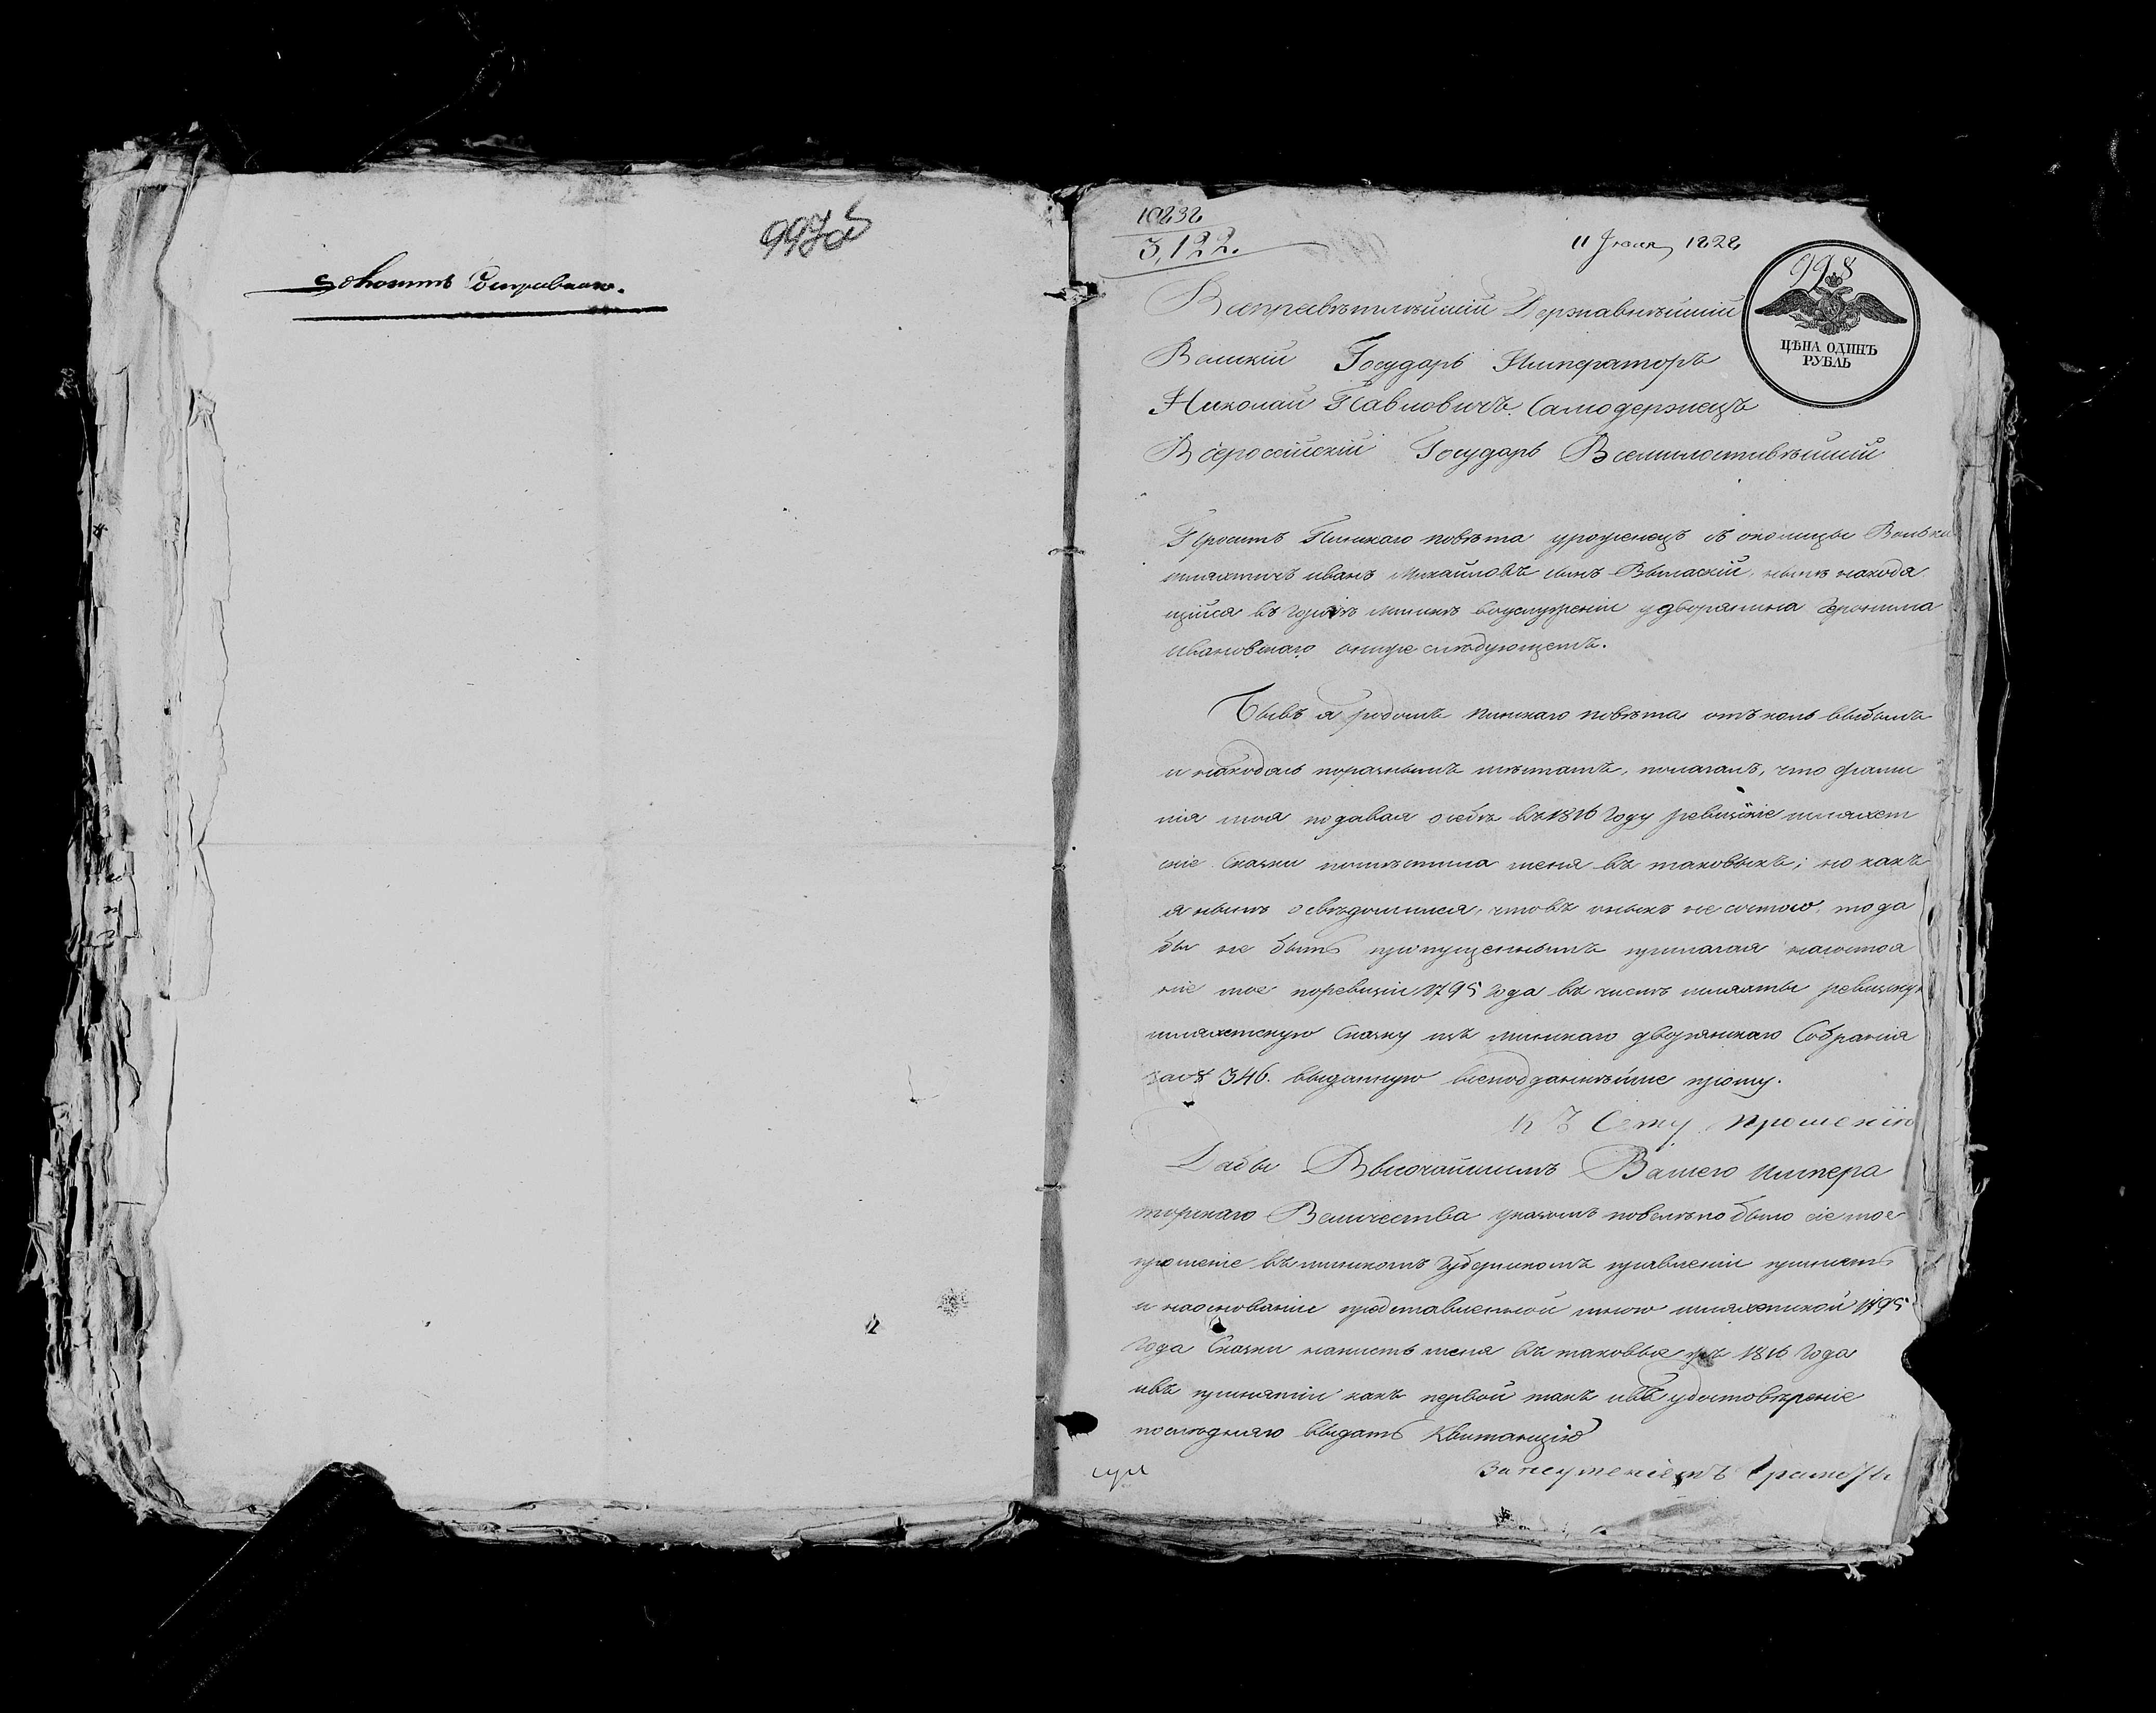 997 об
10232
3,122.
11 Іюня 1828
998
ЦѢНА ОДИНЪ
РУБЛЬ
Всепресвѣтлѣйшій Державнѣйшій
Великій Государь Императоръ
Николай Павловичъ Самодержецъ
Всероссійскій Государь Всемилостивѣйшій
Проситъ Пинскаго повѣта уроженецъ съ околицы
шляхтичъ иванъ Михайловъ сынъ нынѣ находя
щійся въ городѣ минскѣ вуслуженіи удворянина Іеронима
ивановскаго онижеслѣдующемъ.
Бывъ я родомъ пинскаго повѣта отъ коль выбылъ
и находясь поразнымъ мѣстамъ, полагалъ, что фами
лія моя подавая осебѣ въ 1816 году ревизскіе шляхет
скіе сказки помѣстила меня въ таковыхъ; но какъ
я нынѣ освѣдомился, чтовъ оныхъ не состою, то да
бы не быть пропущеннымъ прилагая насостоя
ніе мое поревизіи 1795 года въ числѣ шляхты ревизскую
шляхетскую сказку изъ минскаго дворянскаго Собранія
за № 346. выданную всеподданнѣйше прошу.
къ Сему прошенію
Дабы Высочайшимъ Вашего импера
торскаго Величества указомъ повелѣно было сіе мое
прошеніе въ минскомъ Губернскомъ правленіи принять
и наоснованіи представленной мною шляхетской 1795
года сказки написть меня въ таковыя 1816 года
ивъ принятіи какъ первой такъ ивъ удостовѣреніе
послѣдняго выдать Квитанцію
За неуменіемъ грамоты